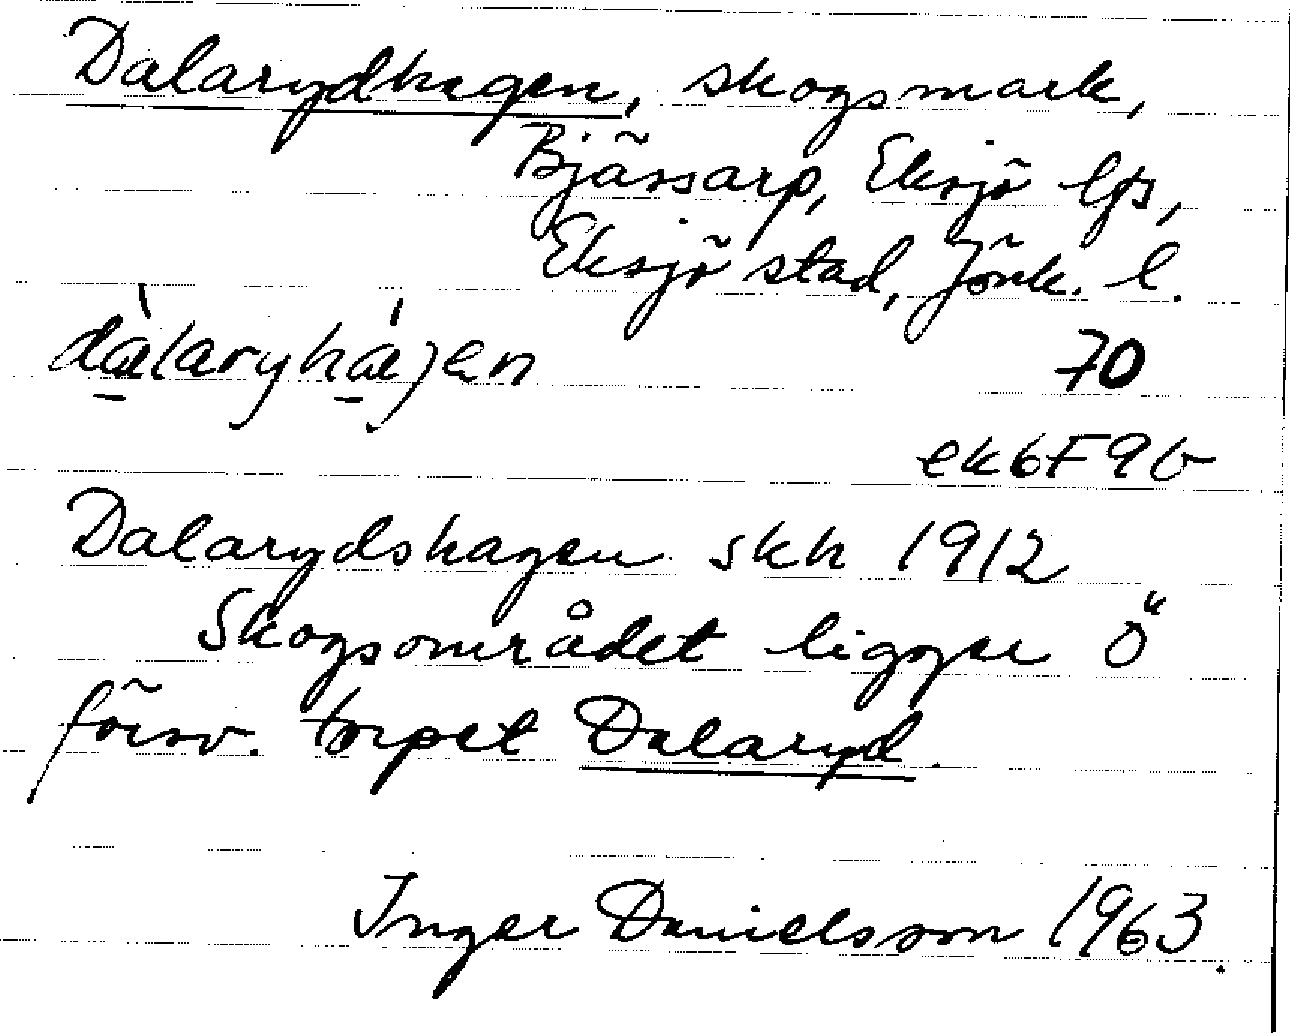 Dalarydhagen, skogsmark,
Bjässarp, Eksjö lfs,
Eksjö stad, Jönk. l.
dàlaryhájen 70
ek 6F9b
Dalarydshagen skh 1912
Skogsområdet ligger Ö
försv. torpet Dalaryd.
Inger Danielsson 1963.